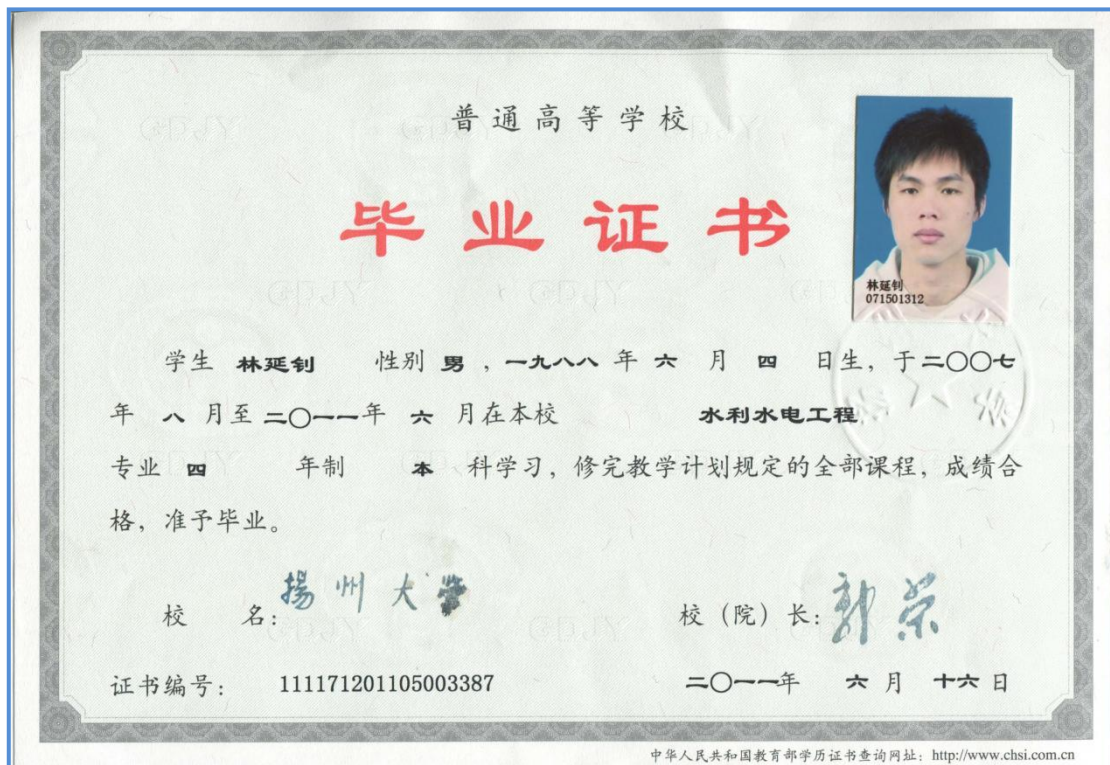 普通高等学校
毕业证书
林延钊
071501312
学生 林延钊 性别 男 ，一九八八 年 六 月 四 日生，于二〇〇七
年 八 月至 二〇一一年 六 月在本校 水利水电工程
专业 四 年制 本 科学习，修完教学计划规定的全部课程，成绩合
格，准予毕业。
校 名：揚州大学 校（院）长：郭荣
证书编号： 111171201105003387 二〇一一年 六 月 十六 日
中华人民共和国教育部学历证书查询网址：http://www.chsi.com.cn